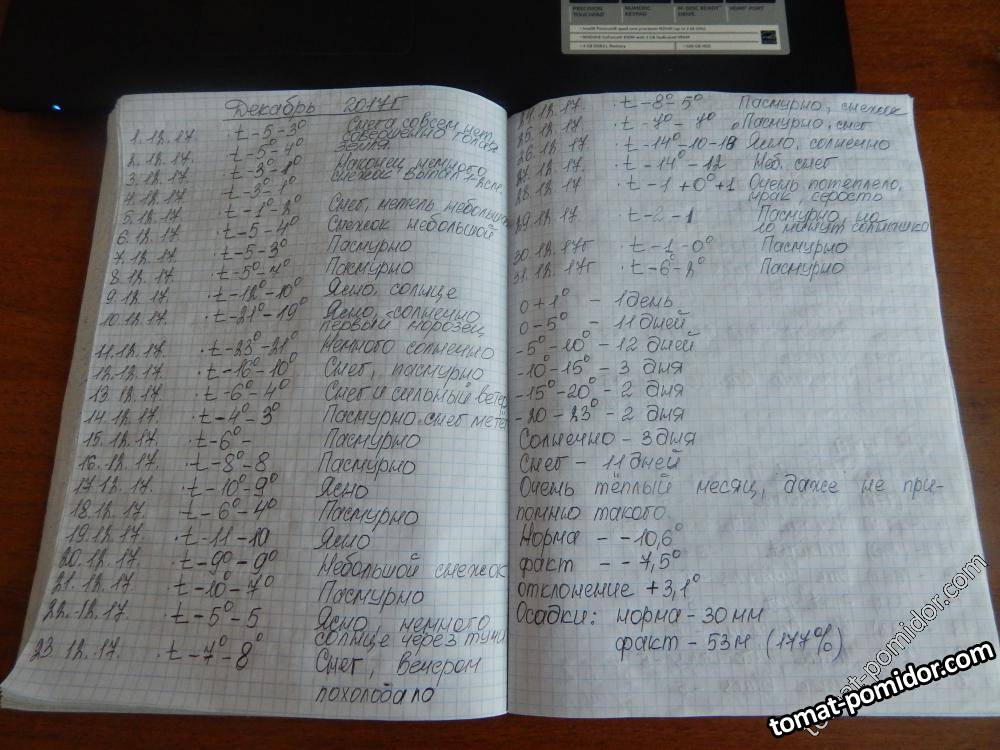 PRECISION TOUCHPAD
NUMERIC KEYPAD
M-DISC READY DRIVE
HDMI PORT
Декабрь 2017г
1.12.17. t-5-3° Снега совсем нет, совершенно голая
2.12.17. t-5°-4° земля
3.12.17 t-3°-1° Наконец немного
4.12.17 t-3°-1° снежок выпал
5.12.17. t-1°-2° Снег, метель небольшая
6.12.17. t-5-4° Снежок небольшой
7.12.17. t-5-3° Пасмурно
8.12.17. t-5°-4° Пасмурно
9.12.17. t-12°-10° Ясно, солнце
10.12.17. t-21°-19° Ясно, солнечно
первый морозец
11.12.17. t-23°-21° Немного солнечно
12.12.17. t-16°-10° Снег, пасмурно
13.12.17. t-6°-4° Снег и сильный ветер
14.12.17. t-4°-3° Пасмурно снег метель
15.12.17. t-6°- Пасмурно
16.12.17. t-8°-8 Пасмурно
17.12.17. t-10°-9° Ясно
18.12.17. t-6°-4° Пасмурно
19.12.17. t-11-10 Ясно
20.12.17. t-9°-9° Небольшой снежок
21.12.17. t-10°-7° Пасмурно
22.12.17. t-5°-5 Ясно, немного
солнце через тучи
23.12.17. t-7°-8° Снег, вечером
похолодало
24.12.17. t-8°-5° Пасмурно, снежок
25.12.17. t-7°-7° Пасмурно, снег
26.12.17. t-14°-10-13 Ясно, солнечно
27.12.17. t-14°-12 Неб. снег
28.12.17 t-1+0°+1 Очень потеплело,
мрак, серость
29.12.17 t-2-1 Пасмурно, но
10 минут солнышко
30.12.17г t-1-0° Пасмурно
31.12.17г t-6°-2° Пасмурно
0+1° - 1 день
0-5° - 11 дней
-5°-10° - 12 дней
-10-15° - 3 дня
-15°-20° - 2 дня
-20-23° - 2 дня
Солнечно - 3 дня
Снег - 11 дней
Очень тёплый месяц, даже не при-
помню такого.
Норма - -10,6°
факт - -7,5°
отклонение +3,1°
Осадки: норма - 30 мм
факт - 53м. (177%)
tomat-pomidor.com
tomat-pomidor.com